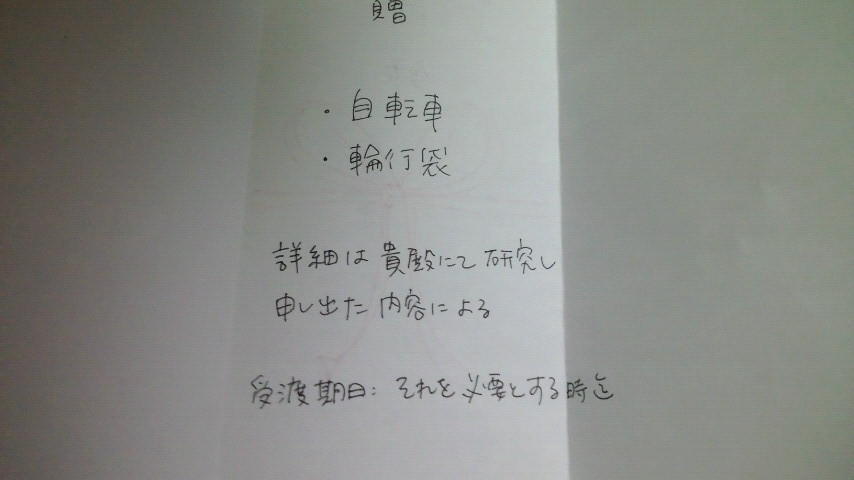 贈
・自転車
・輪行袋
詳細は貴殿にて研究し
申し出た内容による
受渡期日：それを必要とする時迄